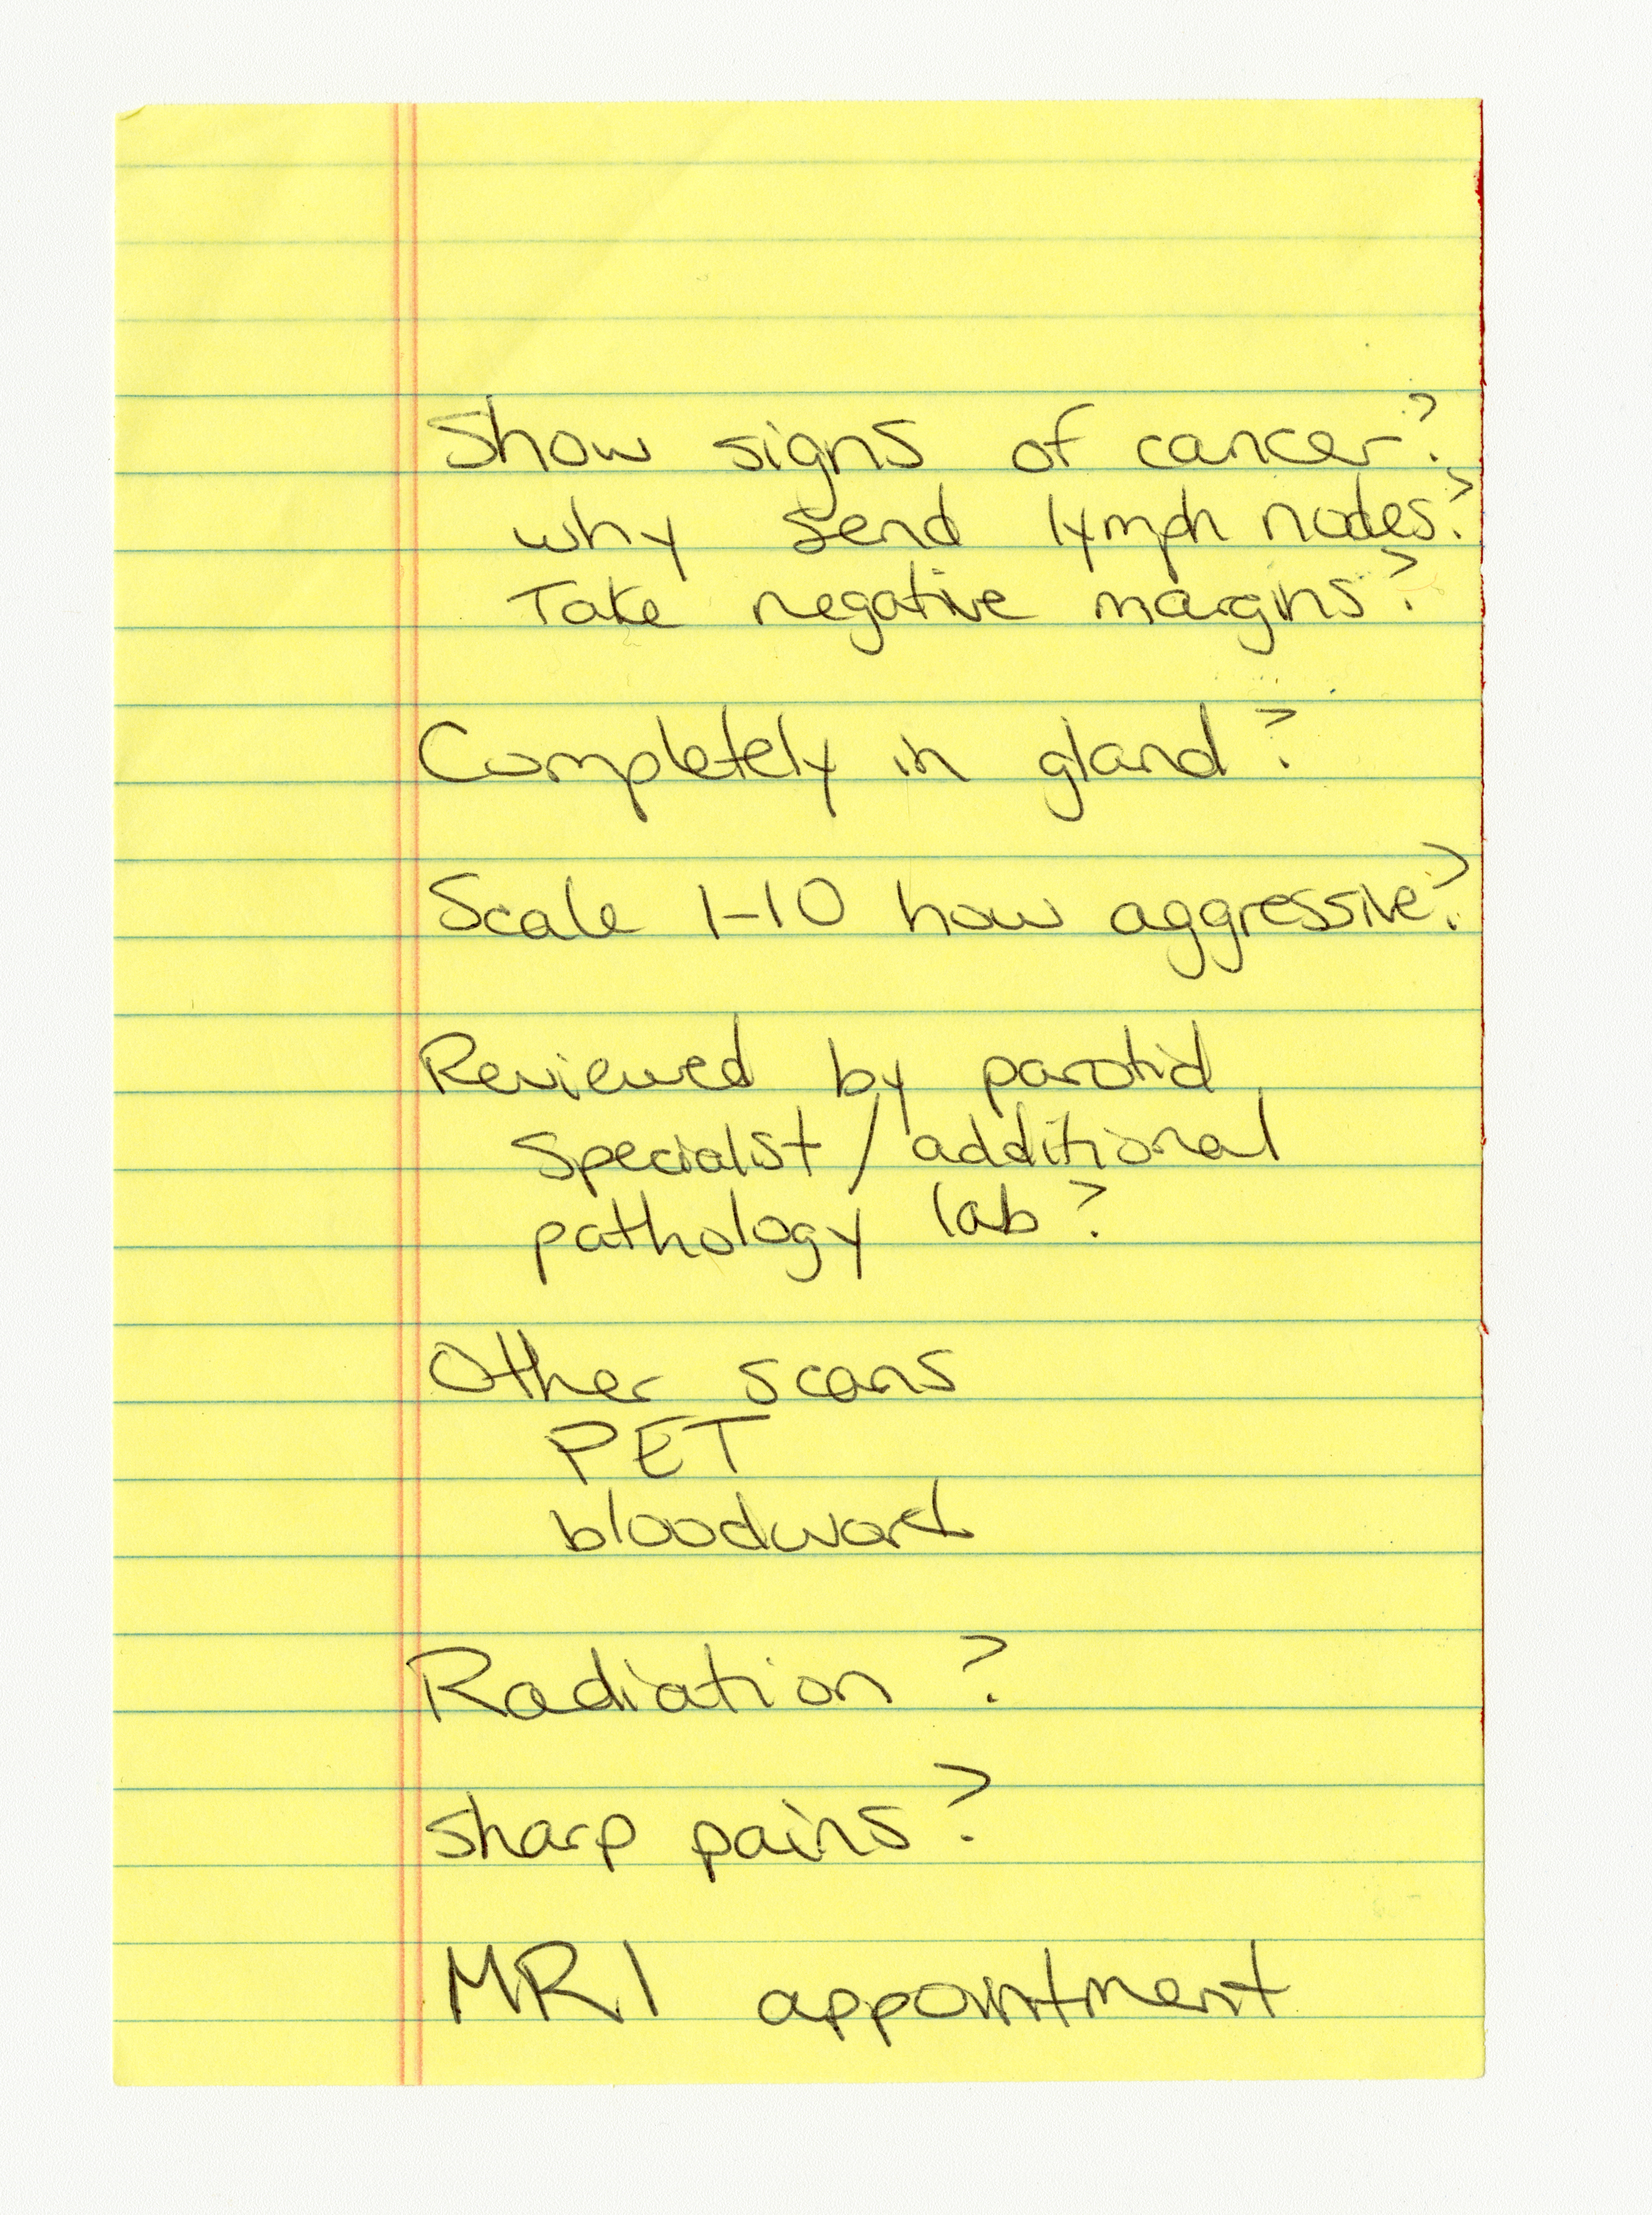 Show signs of cancer?
why send lymph nodes?
Take negative margins?
Completely in gland?
Scale 1-10 how aggressive?
Reviewed by parotid
specialist/additional
pathology lab?
Other scans
PET
bloodwork
Radiation?
sharp pains?
MRI appointment